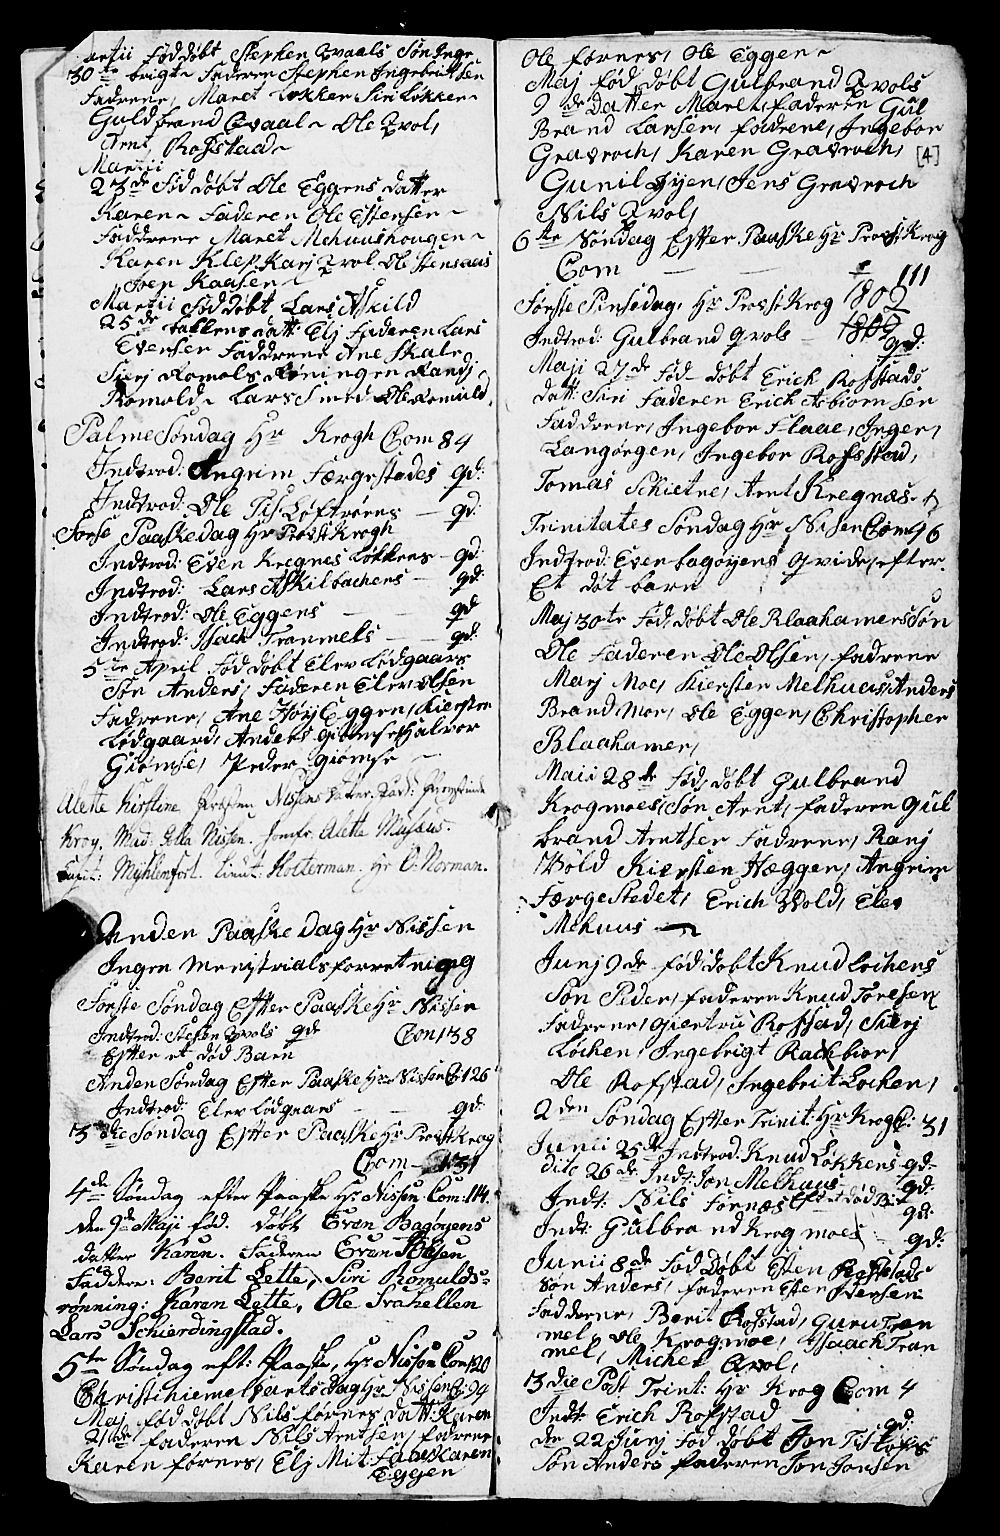 artii fød døbt Stephen Qvaals Søn Inge
30te brigt Faderen Stephen Ingebrittsen
Fadrene, Maret Løkken Siri Løkken
Guldbrand Qvaal Ole Qvol,
Arnt, Rofstad
Martii
23de Fød døbt Ole Eggens datter
Karen Faderen Ole Estensen
Faddrene Maret Mehuushougen
Karen Klep Karj Qvol Ole Stensaas
Joen Kaasen
Martii Fød døbt Lars Askild
25de bakkens datt: Elj Faderen Lars
Evensen Faddrene Ane Skale,
Sirj Romols Røningen Randj
Romold Lars Smed Ole Romuld,
Palme Søndag Hr Krogh Com 84
Indtrod: Angrim Færgestedes gd:
Indtrod: Ole Tis-Løftrøens gd:
Førse Paaskedag Hr Provst Krogh
Indtrod: Even Kregnes Løkkens gd:
Indtrod: Lars Askilbachens gd:
Indtrod: Ole Eggens gd
Indtrod: Isach Tranmels gd:
5te April fød døbt Elev Lødgaars
Søn Anders, Faderen Elev Olsen
Fadrene, Ane Høyj Eggen, Kiersten
Lødgaard, Anders Giømse Halvor
Giømse, Peder Giømse
Alette Kirstine Provsten Nissens Datter. Fadd:
Krog. Mad: Nissen. Jomfr. Alette
Capit: Mühlenfort. Lieut: Holterman. Hr O: Norman.
Anden Paaske Dag Hr Nissen
Ingen Menistrialsforretning
Første Søndag Efter Paaske Hr Nissen
Indtrod: Stefen Qvols gd Com 138
Efter et død Barn
Anden Søndag Efter Paaske Hr Nissen C: 126
Indtrod: Elev Lødgaars gd:
3die Søndag Efter Paaske Hr Provst Krog
Com 131
4de Søndag efter Paaske Hr Nissen Com: 114.
den 9de Maji fød. døbt Even Bagøyens
datter Karen. Faderen Even
Faddere: Berit Lette, Siri Romulds-
rønning: Karen Lette, Ole Svahellen
Lars Schierdingstad.
5te Søndag eft: Paaske, Hr Nissen Com 120
Christi himelfarts dag Hr Nissen C: 94
Maj fød døbt Nils førnes datt: Karen
21de faderen Nils Arntsen, fadrene
Karen førnes, Elj Mit Karen
Eggen
Ole førnes, Ole Eggen
Maj fød døbt Gulbrand Qvols
9de Datter Maret, faderen Gul
Brand Larsen, fadrene, Ingebor
Gravroch, Karen Gravroch, [4]
Gunil Øyen, Jens Gravroch
Nils Qvol,
6te Søndag Efter Paaske Hr Provst Krog
Com 111
Første Pinsedag, Hr Provst Krog 1802
Indtrod: Gulbrand Qvols 1802 gd:
Maji 27de fød døbt Erich Rofstads
datt: Siri Faderen Erich Asbiørnsen
Faddrene, Ingebor Flaae, Inger,
Langørgen, Ingebor Rofstad,
Tomas Schietne, Arnt Kregnæs
Trinitates Søndag Hr Nisen Com 96
Indtrod: Even bagøyens Qvide, efter
Et døt barn
Maj 30te fød døbt Ole Blaahamers Søn
Ole Faderen Ole Olsen, fadrene
Marj Moe, Kiersten Melhuus, Anders
Brand Moe, Ole Eggen, Christopher
Blaahamer,
Maii 28de fød, døbt Gulbrand
Krogmoes, Søn Arnt, faderen Gul
brand Arntsen Fadrene, Ranj
Wold Kiersten Hæggen, Angrim
Færgestedet, Erich Wold, Elev
Mehuus
Junj 9de fød døbt Knud Lochens
Søn Peder, faderen Knud Toresen
Fadrene, Giertru Rofstad, Sirj
Løchen, Ingebrigt Rachbior,
Ole Rofstad, Ingebrit Lochen,
2den Søndag Efter Trinit: Hr Krog C: 31
Junii 25de Indtrod: Knud Løkkens gd
dito 26de Indt: Jon Melhuus gd:
Indt: Nils Førnæs Efter et død B: gd:
Indt: Gulbrand Krogmoes gd:
Junii 8de Fød Døbt Esten Rofstads
Søn Anders, faderen Esten Pedersen
Faddrene, Berit Rofstad, Guru Tran
mel, Ole Krogmoe, Isaach Tran
mel, Michel Qvol,
3die Post Trint: Hr Krog Com 4
Indt: Erich Rofstad gd:
den 22 Junj fød døbt Jon Tis Løfts
Søn Anders faderen Jon Jonsen